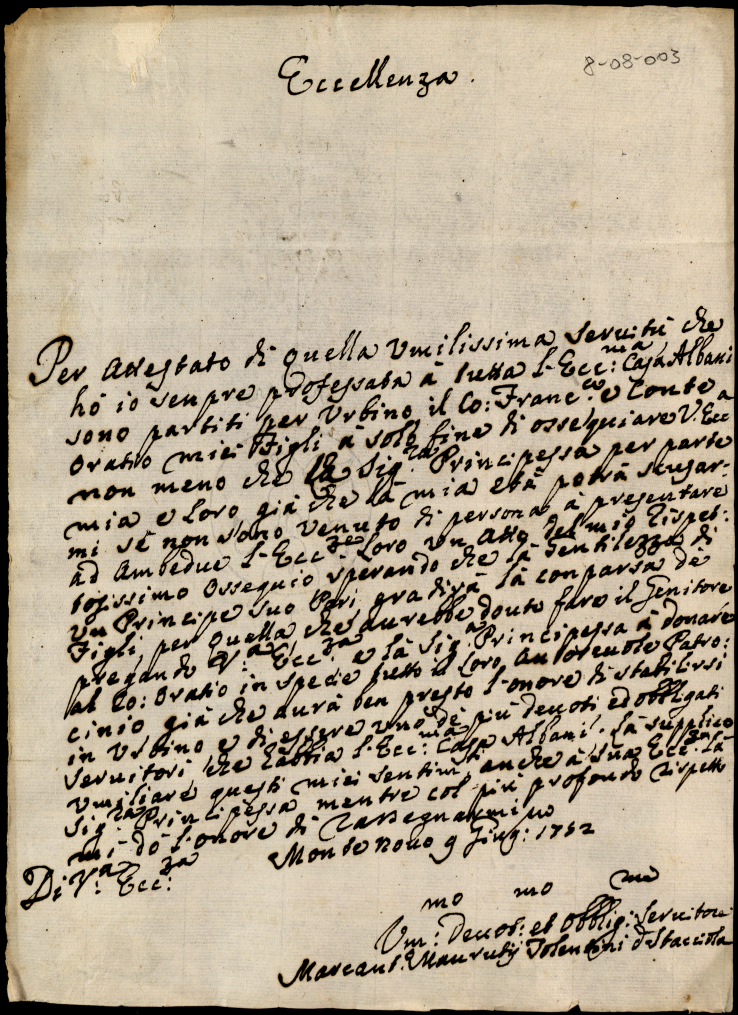 8-08-003
Eccellenza.
Per Attestato di quella Umilissima Servitù che
hò io sempre professata à tutta l'Ecc:ma Casa Albani
sono partiti per Urbino il Co: Franc:co e Conte
Oratio miei Figli à solo fine di ossequiare V. Ecc:a
non meno che la Sig:ra Principessa per parte
mia e Loro già che la mia età potrà scusar-
mi sè non sono venuto di persona à presentare
ad Ambedue l'Ecc:ze Loro un Atto del mio rispet:
tosissimo Ossequio sperando che la Gentilezza di
un Principe suo Pari gradirà la comparsa dè
Figli per quella che aurebbe douto fare il Genitore
pregando V:a Ecc:za e la Sig:a Principessa à donare
al Co: Oratio in specie tutto il Loro Autoreuole Patro:
cinio già che aurà ben presto l'onore di stabilirsi
in Urbino e di essere uno dè più deuoti ed obbligati
Seruitori che habbia l'Ecc:ma Casa Albani. La supplico
Umiliare questi miei sentim:ti anche à Sua Ecc:za la
Sig:ra Principessa mentre col più profondo rispetto
mi dò l'onore di rassegnarmi
Di V:a Ecc:za
Monte nouo 9 Giug: 1752
Um:mo Deuot:mo et Obblig:mo Seruitore
Marcant:o Mauruty Tolentini d Stacciola